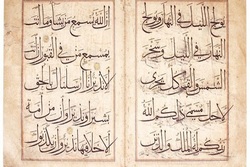 يولج الليل في النهار ويولج
النهار في الليل وسخر
الشمس والقمر كل يجري
لاجل مسمى ذلكم الله
ربكم له الملك والذين
الله يسمع من يشاء وما انت
بمسمع من في القبور ان انت
الا نذير انا ارسلناك بالحق
بشيرا ونذيرا وان من امة
الا خلا فيها نذير وان